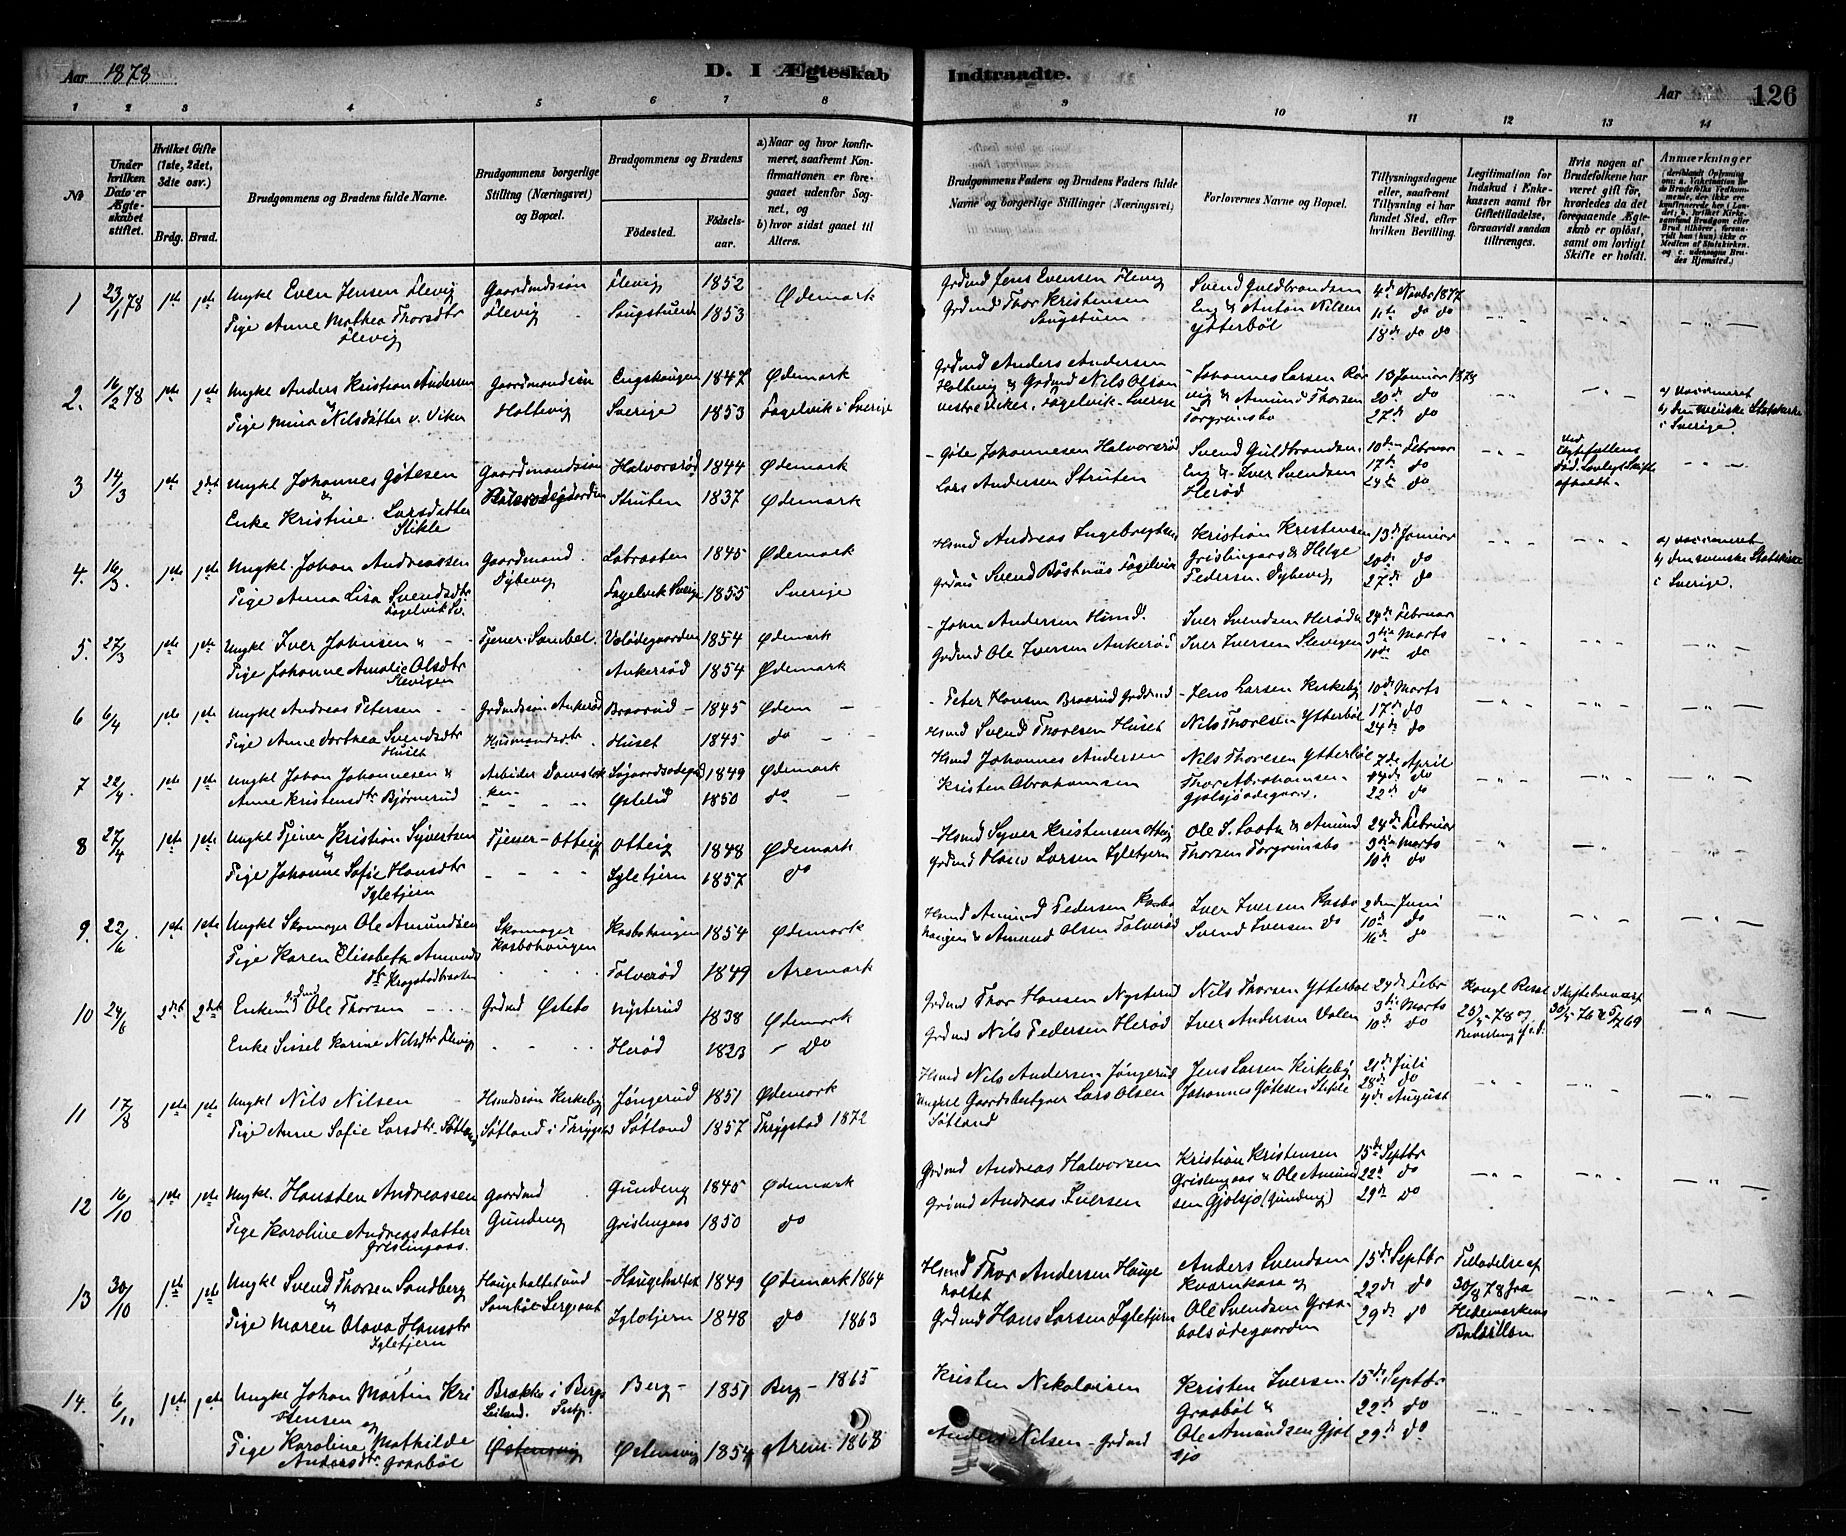 Aar 1878
D. I Ægteskab Indtraadte.
Aar 126
1 2 3 4 5 6 7 8 9 10 11 12 13 14
No.
Under hvilken Dato er Ægteskabet stiftet.
Hvilket Gifte (1ste, 2det, 3die osv.)
Brdg. Brud.
Brudgommens og Brudens fulde Navne.
Brudgommens borgerlige Stilling (Næringsvei) og Bopæl.
Brudgommens og Brudens
Födested.
Födselsaar.
a) Naar og hvor konfirmeret, saafremt Konfirmationen er foregaaet udenfor Sognet, og
b) hvor sidst gaaet til Alters.
Brudgommens Faders og Brudens Faders fulde Navne og borgerlige Stillinger (Næringsvei)
Forlovernes Navne og Bopæl.
Tillysningsdagene eller, saafremt Tillysning ei har fundet Sted, efter hvilken Bevilling.
Legitimation for Indskud i Enkekassen samt for Giftetilladelse, forsaavidt saadan tiltrænges.
Hvis nogen af Brudefolkene har været gift för, hvorledes da det foregaaende Ægteskab er oplöst, samt om lovligt Skifte er holdt.
Anmærkninger
1 23/1 78 1ste 1ste Ungkl Even Jensen Ølevig Gaardmdssøn Ølevig 1852 Ødemark Grdmd Jens Evensen Ølevig Svend Guldbrandsen 4de Novbr 1877
Tige Anne Mathea Thorsdtr Ølevig Ølevig Saugstuen 1853 Grdmd Thor Kristensen Saugstuen Eng & Anton Nilsen Ytterbøl 11te do do
18de do do
2. 16/2 78 1ste 1ste Ungkl Anders Kristian Andersen Gaardmandssøn Engskougen 1847 Ødemark Grdmd Anders Andersen Johannes Larsen 13 Januar 1878 a) vacsineret
Pige Mina Nilsdatter v. Viker Holtevig Sverige 1853 Fagelvik i Sverige Holtevig & Grdmd Nils Olsen vestre Viker, Fagelvik - Sverige & Amund Thorsen Torgrimsbo 20de do 27de do b) den svenske Statskirke i Sverige.
3 14/3 1ste 2det Ungkl Johannes Gøtesen Gaardmandssøn Halvorsrød 1844 Ødemark Gøte Johannesen Halvorsrød Svend Guldbrandsen 10de Februar Ved
& Enke Kristine Larsdatter Stikle Struten 1837 Ødemark Lars Andersen Struten Eng & Iver Svendsen Herød 17de do 24de do død. Lovligt Skifte afholdt.
4. 16/3 1ste 1ste Ungkl. Johan Andreassen Gaardmand Labraaten 1845 Ødemark Hsmd Andreas Engebregtsen Kristian Kristensen 13de Januar a) vacsineret
Pige Anna Lisa Svendsdtr Fagelvik Sv. Dybevig Fagelvik Sverige 1855 Sverige Svend Fagelvik Grislingaas & Helge Pedersen Dybevig 20de do 27de do b) den svenske Statskirke i Sverige.
5. 27/3 1ste 1ste Ungkl Iver Johnsen & Tjener Sambøl Volødegaarden 1854 Ødemark John Andersen Hsmd. Iver Svendsen Herød 24de Februar
Pige Johanne Amalie Olsdtr Slevigen Ankersrød 1854 Ødemark Grdmd Ole Iversen Ankersrød Iver Iversen Slevigen 3die Marts 10de do
6 6/4 1ste 1ste Ungkl Andreas Petersen Grdmdssøn Ankerød Braarud 1845 Ødem Peter Hansen Braarud Grdmd Jens Larsen Kirkeby 10de Marts
Pige Anne Dorthea Svendsdtr Huset Husmandsdtr Huset 1845 do Hsmd Svend Thoresen Huset Nils Thoresen Ytterbøl 17de do 24de do
7 22/4. 1ste 1ste Ungkl Johan Johannesen & Arbeider Søgaardsødegrd 1849 Ødemark Hsmd Johannes Andersen Nils Thoresen Ytterbøl 7de April
Anne Kristensdtr Bjørnerud Østlid 1850 do Kristen Abrahamsen Thor Abrahamsen Gjølsjøødegaard. 14de do 22de do
8 27/4 1ste 1ste Ungkl Tjener Kristian Syvertsen Tjener - Otteig Otteig 1848 Ødemark Hsmd Syver Kristensen Otteig Ole & Amund 24de Februar
& Pige Johanne Sofie Hansdtr Igletjern Igletjern 1857 do Grdmd Hans Larsen Igletjern Thorsen Torgrimsbo 3die Marts 10de do
9. 22/6. 1ste 1ste Ungkl Skomager Ole Amundsen Skomager Kasbohaugen Kasbohaugen 1854 Ødemark Hsmd Amund Pedersen Kasbo Iver Iversen Kasbo 2den Juni
Pige Karen Elisabeth Amundsdtr Kragstadbraaten Tolverød 1849 Aremark haugen & Amund Olsen Tolverød Svend Iversen do 10de do 16de do
10 24/6 2det 2det Enkemd Grdmd Ole Thorsen Grdmd Østebø Nysterud 1838 Ødemark Grdmd Thor Hansen Nysterud Nils Thorsen Ytterbøl 24de Febr Kongl Resol
Enke Sissel Karine Nilsdtr Ølevig Herød 1823 Do Grdmd Nils Pedersen Herød Iver Andersen Valen 3die Marts 10de do
11 17/8 1ste 1ste Ungkl Nils Nilsen Hsmdssøn Kirkeby Jøngerud 1851 Ødemark Hsmd Nils Andersen Jøngerud Jens Larsen Kirkeby 21de Juli
Pige Anne Sofie Larsdtr Søtland Søtland i Thrygstad Søtland 1857 Thrygstad 1872 Ungkl Gaardbruger Lars Olsen Søtland Johannes Gøtesen Stikle 28de do 4de August
12 16/10 1ste 1ste Ungkl. Hansten Andreassen Gaardmd Gundeng 1845 Ødemark Grdmd Andreas Halvorsen Kristian Kristensen 15de Septbr
Pige Karoline Andreasdatter Grislingaas. Gundeng Grislingaas 1850 do Grdmd Andreas Iversen Grislingaas & Ole Amundsen Gjølsjø (Gundeng) 22de do 29de do
13 30/10 1ste 1ste Ungkl Svend Thorsen Sandberg Haugeholtet und Haugeholtet 1849 Ødemark 1864 Hsmd Thor Andersen Haugeholtet Anders Svendsen Kvarnkasa og 15de Septbr Tilladelse af
& Pige Maren Olava Hansdtr Igletjern Sergeant Igletjern 1848 do 1863 Grdmd Hans Larsen Igletjern Ole Svendsen Graabølsødegaarden 22de do 29de do 30/8 78 fra Hedemarkens Bataillon
14. 6/11 1ste 1ste Ungkl Johan Martin Kristensen og Brække i Bergs Berg 1851 Berg 1865 Kristen Nikolaisen Kristen Iversen Graabøl & 15de Septbr
Pige Karoline Mathilde Andersdtr Graabøl Østensvig Østensvig 1854 Arem. 1868 Anders Nilsen Grdmd Ole Amundsen Gjølsjø 22de do 29de do